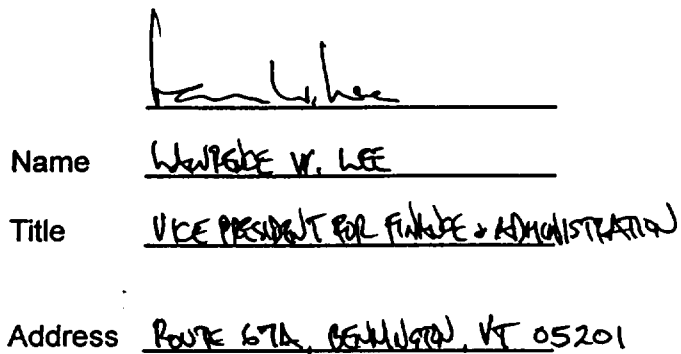 Name LAWRENCE W. LEE
Title VICE PRESIDENT FOR FINANCE & ADMINISTRATION
Address ROUTE 67A, BENNINGTON, VT 05201